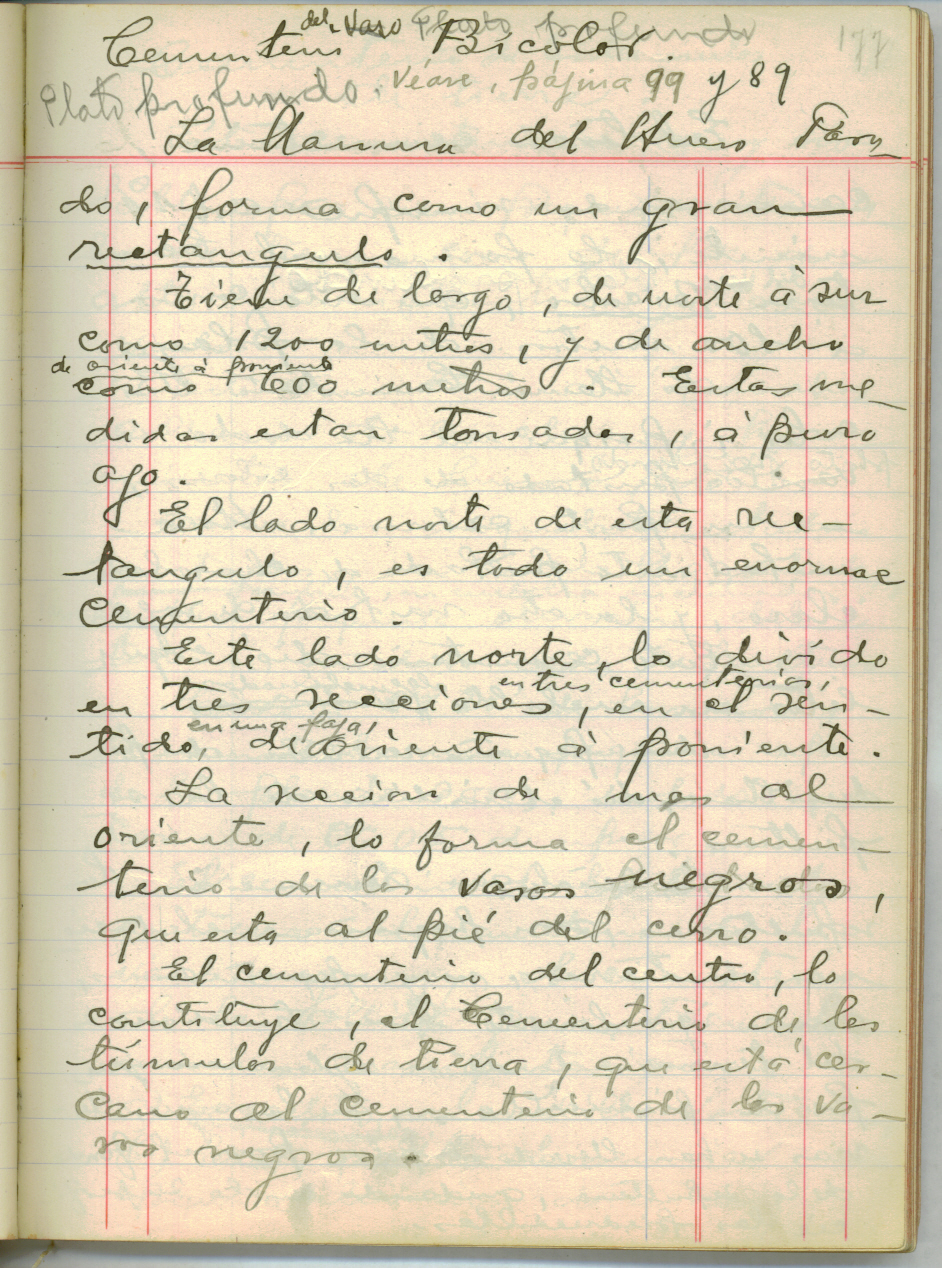 del Vaso Plato profundo
Cementerio Bicolor. 177
Plato profundo. Véase, página 99 y 89
La llanura del Hueso Para_
do, forma como un gran
rectangulo.
Tiene de largo, de norte à sur
como 1200 metros, y de ancho
de oriente à poniente
como 600 metros. Estas me_
didas estan tomadas, à puro
ojo.
El lado norte de este rec-
tangulo, es todo un enorme
cementerio.
Este lado norte, lo divido
en tres cementerios,
en tres secciones, en el sen-
en una faja,
tido, de oriente à poniente.
La seccion de mas al
oriente, lo forma el cemen-
terio de los vasos negros,
que esta al pié del cerro.
El cementerio del centro, lo
constituye, el Cementerio de los
túmulos de tierra, que está cer-
cano al cementerio de los va-
sos negros.